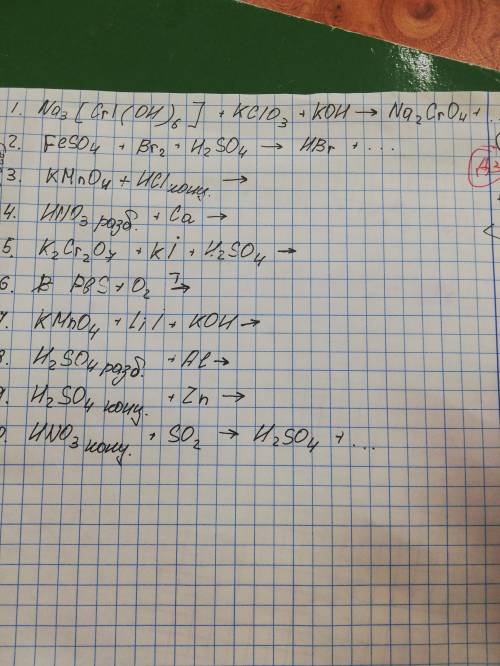 1. Na₃[Cr(OH)₆] + KClO₃ + KOH → Na₂CrO₄ + ..
2. FeSO₄ + Br₂ + H₂SO₄ → HBr + ...
3. KMnO₄ + HCl конц. →
4. HNO₃ разб. + Ca →
5. K₂Cr₂O₇ + KI + H₂SO₄ →
6. PbS + O₂ →
KMnO₄ + LiI + KOH →
H₂SO₄ разб. + Al →
H₂SO₄ конц. + Zn →
HNO₃ конц. + SO₂ → H₂SO₄ + ...